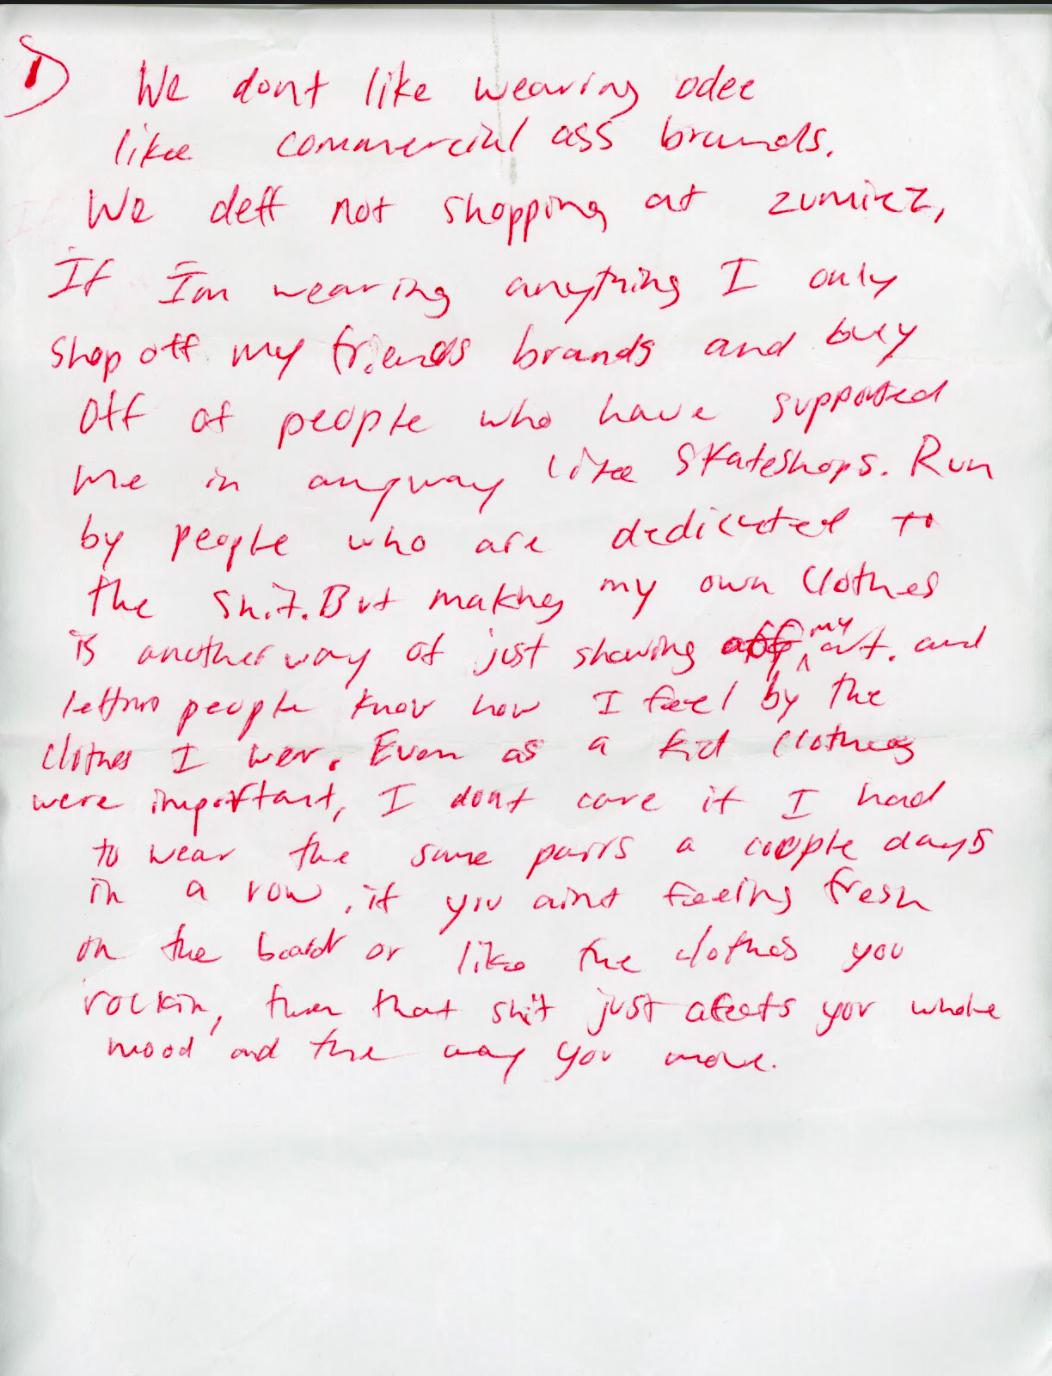 1) We dont like wearing odee
like commercial ass brands.
We deff not shopping at zumiez,
If Im wearing anything I only
shop off my friends brands and buy
off of people who have supported
me in anyway like Skateshops. Run
by people who are dedicated to
the shit. But making my own clothes
is another way of just showing my art. and
letting people know how I feel by the
clothes I wer. Even as a kid clothes
were important, I dont care if I had
to wear the same pairs a couple days
in a row, if you aint feeling fresh
on the board or like the clothes you
rockin, then that shit just afects your whole
mood and the way you move.